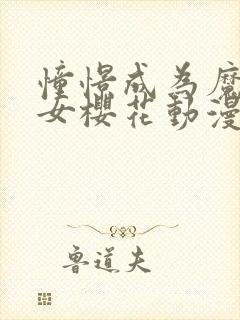 憧憬成為魔
女櫻花動漫
魯道夫